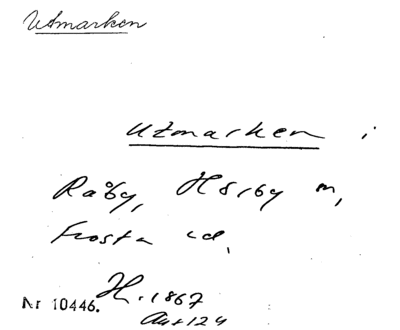 Utmarken
Utmarken i
Råby, Hörby m,
Frosta
Nr 10446. H. 1867